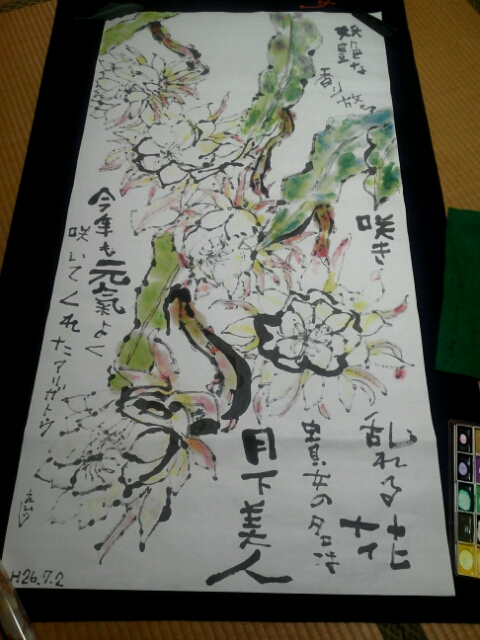 妖艶な
放つ
咲き
乱れる花
貴女の名は
月下美人
今年も元氣よく
咲いてくれたアリガトウ
H26.7.2